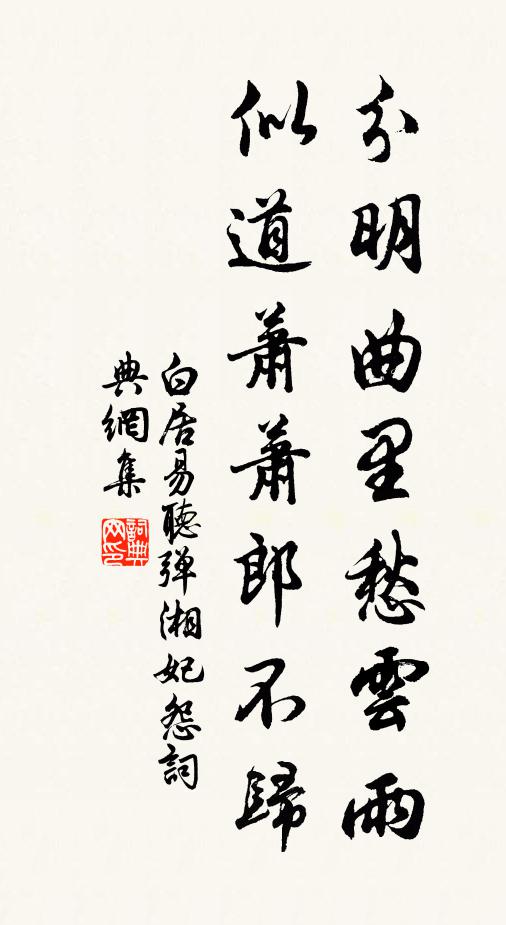 分明曲里愁雲雨
似道蕭蕭郎不歸
白居易聽弹湘妃怨詞
典網集
詞典网印